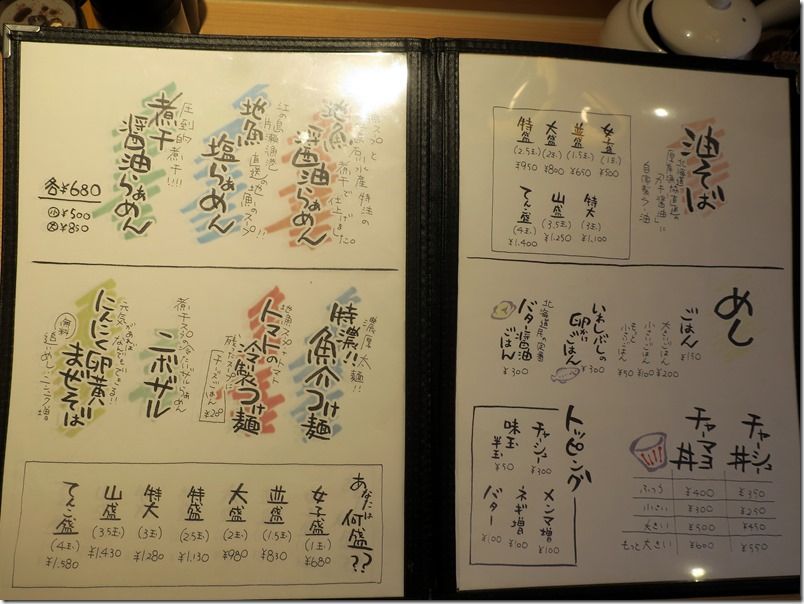 地魚醤油らぁめん
煮干で仕上げました。
地魚塩らぁめん
江の島片瀬漁港
直送の地魚のスープ!!
煮干醤油らぁめん
圧倒的煮干!!!
各¥680
小¥500
大¥850
特濃!!魚介つけ麺
濃厚太麺!!
トマトの冷製つけ麺
地魚スープ+トマト
残ったスープに
¥200
ニボザル
煮干スープの冷たいザルらぁめん
にんにく卵黄まぜそば
元気があればなんでもできる!!
無料
追いめし、ニンニク増
あなたは何盛??
女子盛(1玉)¥680
並盛(1.5玉)¥830
大盛(2玉)¥980
特盛(2.5玉)¥1.130
特大(3玉)¥1.280
山盛(3.5玉)¥1.430
てんこ盛(4玉)¥1.580
油そば
北海道
自家製ラー油
女子盛(1玉)¥500
並盛(1.5玉)¥650
大盛(2玉)¥800
特盛(2.5玉)¥950
特大(3玉)¥1.100
山盛(3.5玉)¥1.250
てんこ盛(4玉)¥1.400
めし
ごはん ¥150
大きいごはん ¥200
小さいごはん ¥100
もっと小さいごはん ¥50
いわしぶしの卵かけごはん ¥300
北海道民の定番
バター醤油ごはん ¥300
チャーシュー丼
チャーマヨ丼
ふつう ¥400 ¥350
小さい ¥300 ¥250
大きい ¥500 ¥450
もっと大きい ¥600 ¥550
トッピング
チャーシュー ¥300
味玉
半玉 ¥50
メンマ増 ¥100
ネギ増 ¥100
バター ¥100